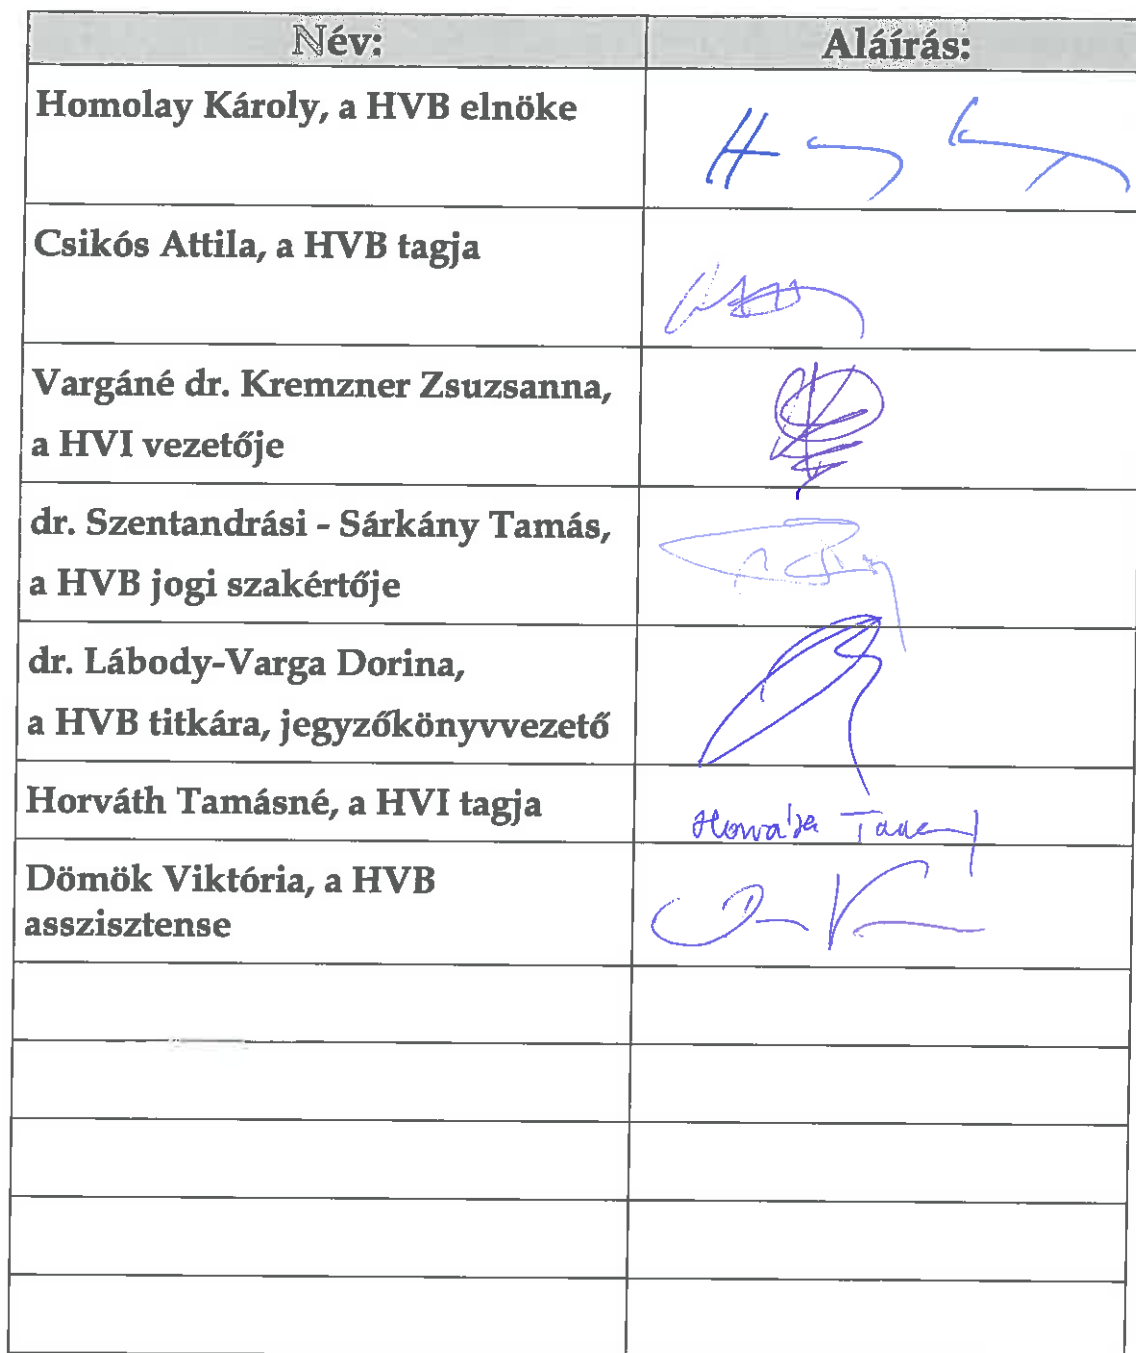 Név: Aláírás:
Homolay Károly, a HVB elnöke
Csikós Attila, a HVB tagja
Vargáné dr. Kremzner Zsuzsanna,
a HVI vezetője
dr. Szentandrási - Sárkány Tamás,
a HVB jogi szakértője
dr. Lábody-Varga Dorina,
a HVB titkára, jegyzőkönyvvezető
Horváth Tamásné, a HVI tagja
Dömök Viktória, a HVB
asszisztense